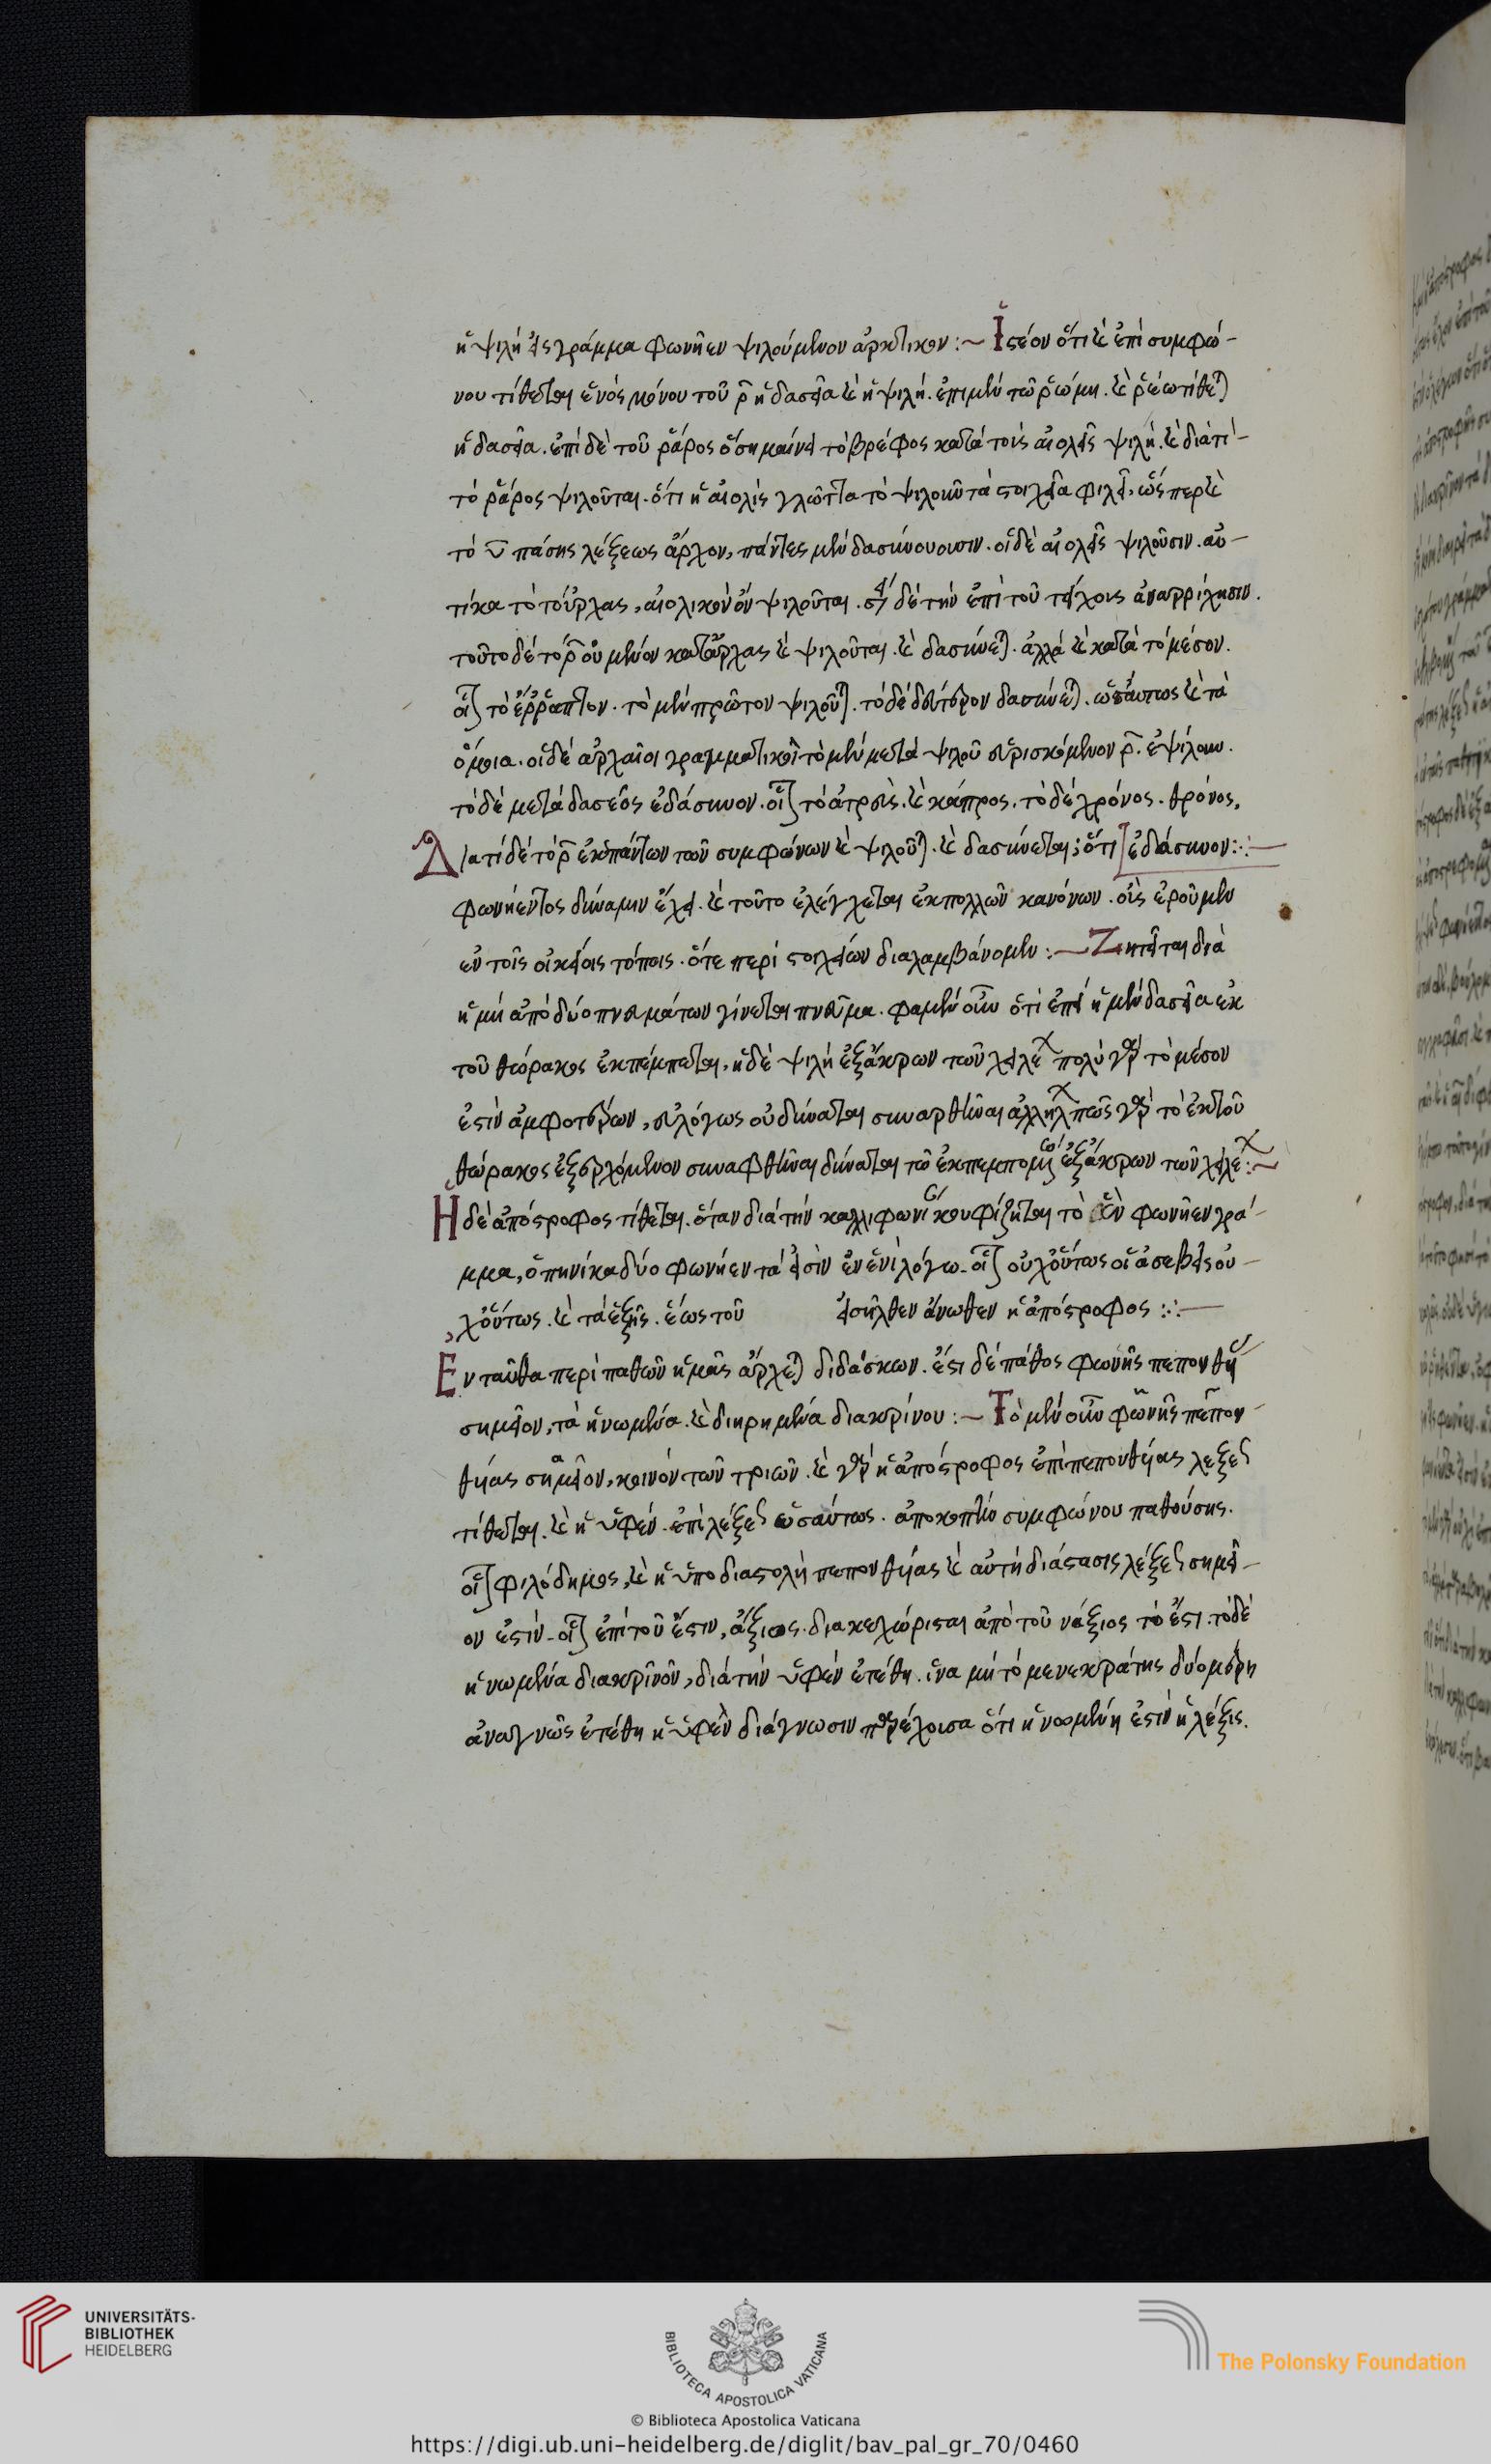 ἡ ψιλὴ εἰς γράμμα φωνῆεν ψιλούμενον ἀρκτικον :~ Ἰστέον ὅτι καὶ ἐπὶ συμφώ-
νου τίθεται ἑνὸς μόνου τοῦ ρ ἡ δασεῖα καὶ ἡ ψιλή. ἐπι μὲν τῶ ῥώμη. καὶ ῥέω τίθεται
ἡ δασεῖα. ἐπὶ δὲ τοῦ ῥάρος ὃ σημαίνει τὸ βρέφος κατὰ τοὺς αἰολεῖς ψιλή. καὶ διὰ τί
τὸ ῥάρος ψιλοῦται. ὅτι ἡ αἰολὶς γλῶττα τὸ ψιλοῦν τὰ στοιχεῖα φιλεῖ, ὥσπερ καὶ
τὸ υ πάσης λέξεως ἄρχον, πάντες μὲν δασύνουσιν. οἱ δὲ αἰολεῖς ψιλοῦσιν. αὐ-
τίκα τὸ τούρχας, αἰολικὸν ὂν ψιλοῦται. δὲ τὴν ἐπὶ τοῦ τείχους ἀναρρίχησιν.
τοῦτο δὲ τὸ ρ οὐ μόνον καταρχὰς καὶ ψιλοῦται. καὶ δασύνεται. ἀλλὰ καὶ κατὰ τὸ μέσον.
οἷον τὸ ἔρραπτον. τὸ μὲν πρῶτον ψιλοῦται. τὸ δὲ δεύτερον δασύνεται. ὡσαύτως καὶ τὰ
ὅμοια. οἱ δὲ ἀρχαῖοι γραμματικοὶ τὸ μὲν μετὰ ψιλοῦ εὑρισκόμενον ρ. ἐψίλουν.
τὸ δὲ μετὰ δασέος ἐδάσυνον. οἷον τὸ ἀτρεὺς. καὶ κάπρος. τὸ δὲ χρόνος. θρόνος,
Διατί δὲ τὸ ρ ἐκ πάντων τῶν συμφώνων καὶ ψιλοῦται. καὶ δασύνεται; ὅτι [ἐδάσυνον :·:—
φωνήεντος δύναμιν ἔχει. καὶ τοῦτο ἐλέγχεται ἐκ πολλῶν κανόνων. οὓς ἐροῦμεν
ἐν τοῖς οἰκείοις τόποις. ὅτε περὶ στοιχείων διαλαμβάνομεν :— Ζητεῖται διὰ
ἢ μὴ ἀπὸ δύο πνευμάτων γίνεται πνεῦμα. φαμὲν οὖν ὅτι ἐπεὶ ἡ μὲν δασεῖα ἐκ
τοῦ θώρακος ἐκπέμπεται, ἡ δὲ ψιλὴ ἐξ ἄκρων τῶν χειλέων πολὺ γὰρ τὸ μέσον
ἐστὶν ἀμφοτέρων, εὐλόγως οὐ δύναται συναφθῆναι ἀλλήλ πῶς γὰρ τὸ ἐκ τοῦ
θώρακος ἐξερχόμενον συναφθῆναι δύναται τῶ ἐκπεμπομένω ἐξ ἄκρων τῶν χειλέων :~
Ἡ δὲ ἀπόστροφος τίθεται. ὅταν διὰ τὴν καλλιφωνίαν κουφίζηται τὸ ἓν φωνῆεν γρά-
μμα, ὁπηνίκα δύο φωνήεντα εἰσὶν ἐν ἑνὶ λόγω. οἷον οὐχ οὕτως οἱ ἀσεβεῖς οὐ-
χ οὕτως. καὶ τὰ ἑξῆς. ἕως τοῦ εἰσῆλθεν ἄνωθεν ἡ ἀπόστροφος :·:—
Ἐνταῦθα περὶ παθῶν ἡμᾶς ἄρχεται διδάσκων. ἔστι δὲ πάθος φωνῆς πεπονθυίας
σημεῖον, τὰ ἡνωμένα. καὶ διηρημένα διακρίνου :~ Τὸ μὲν οὖν φωνῆς πεπον-
θυίας σημεῖον, κοινὸν τῶν τριῶν. καὶ γὰρ ἡ ἀπόστροφος ἐπὶ πεπονθυίας λέξεως
τίθεται. καὶ ἡ ὑφέν. ἐπὶ λέξεως ὡσαύτως. ἀποκοπὴν συμφώνου παθούσης.
οἷον φιλόδημος, καὶ ἡ ὑποδιαστολὴ πεπονθυίας καὶ αὐτὴ διάστασις λέξεως σημεῖ-
ον ἐστίν. οἷον ἐπὶ τοῦ ἔστιν, ἄξιος. διακεχώρισται ἀπὸ τοῦ νάξιος τὸ ἔστι. τὸ δὲ
ἡνωμένα διακρῖνον, διὰ τὴν ὑφὲν ἐτέθη. ἵνα μὴ τὸ μενεκράτης δύο μέρη
ἀναγνῶς ἐτέθη ἡ ὑφὲν διάγνωσιν παρέχουσα ὅτι ἡνωμένη ἐστὶν ἡ λέξις.
UNIVERSITÄTS-
BIBLIOTHEK
HEIDELBERG
BIBLIOTECA APOSTOLICA VATICANA
The Polonsky Foundation
© Biblioteca Apostolica Vaticana
https://digi.ub.uni-heidelberg.de/diglit/bav_pal_gr_70/0460